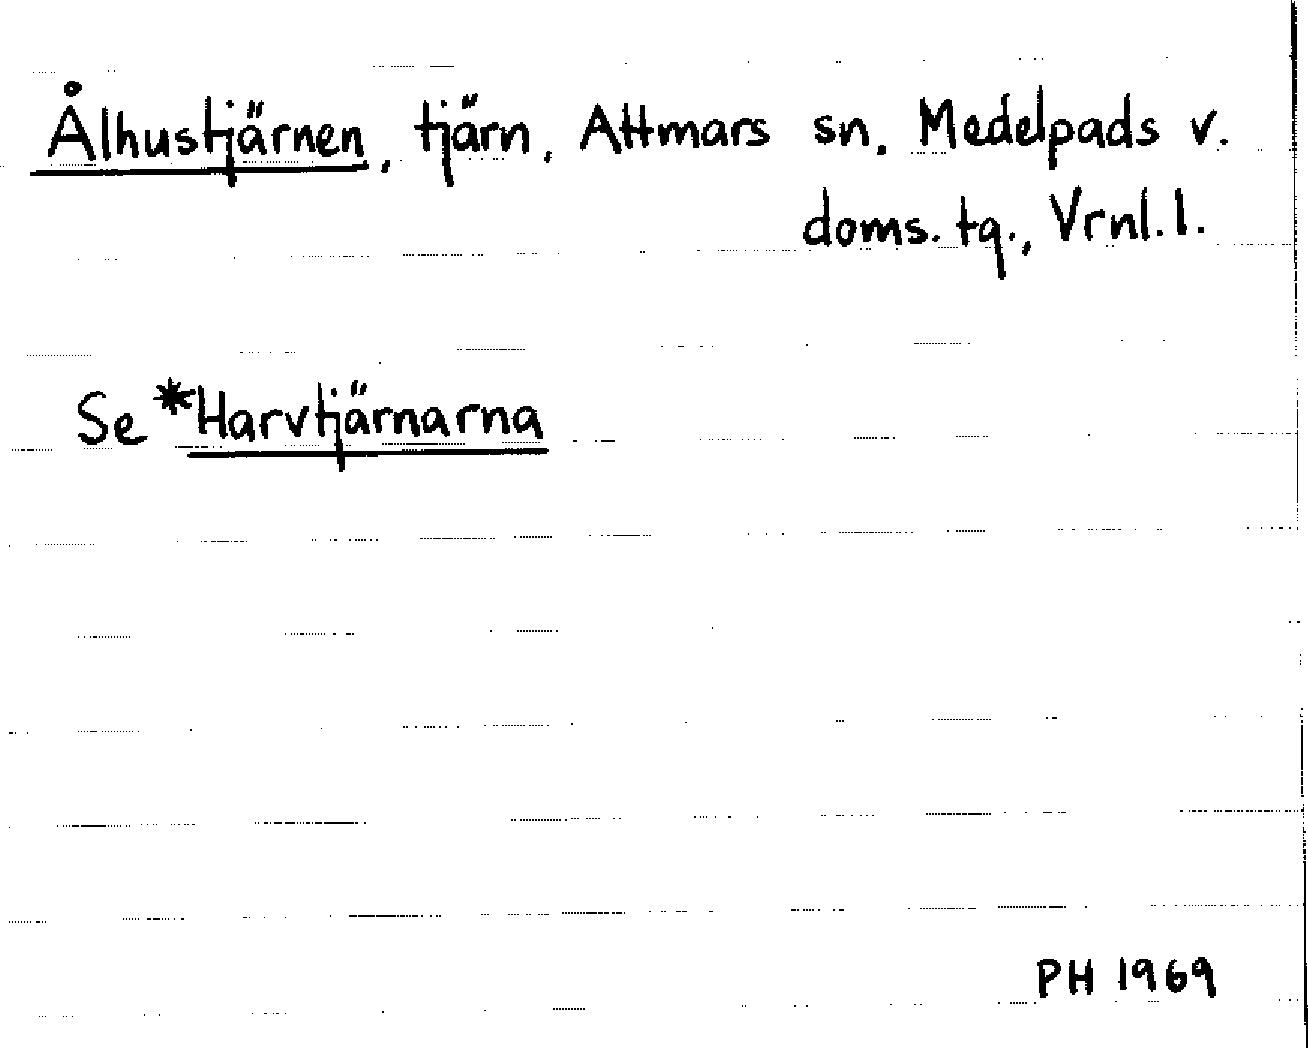 Ålhustjärnen, tjärn, Attmars sn, Medelpads v.
doms. tg., Vrnl. l.
Se *Harvtjärnarna
PH 1969